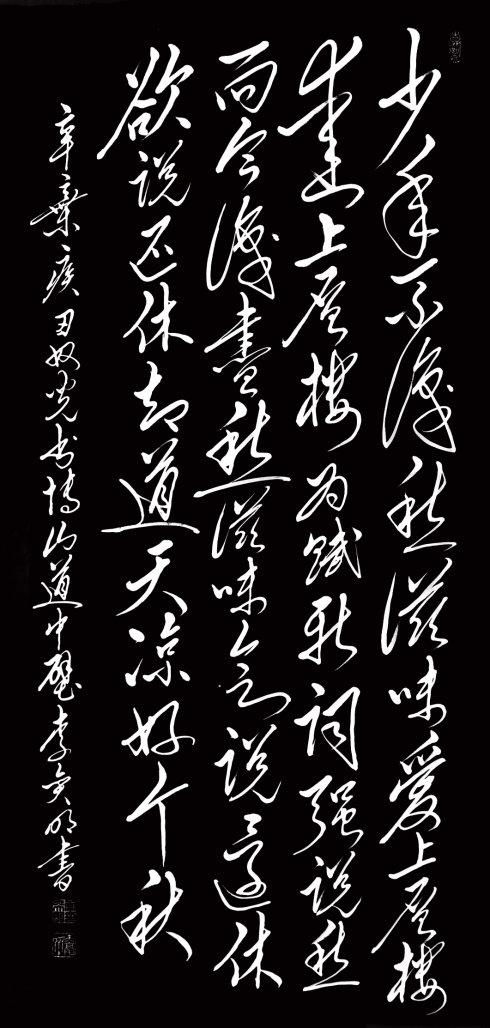 少年不識愁滋味愛上层楼
爱上层楼为赋新词强说愁
而今識盡愁滋味欲说還休
欲说还休却道天凉好个秋
辛棄疾丑奴兒书博山道中壁李明書